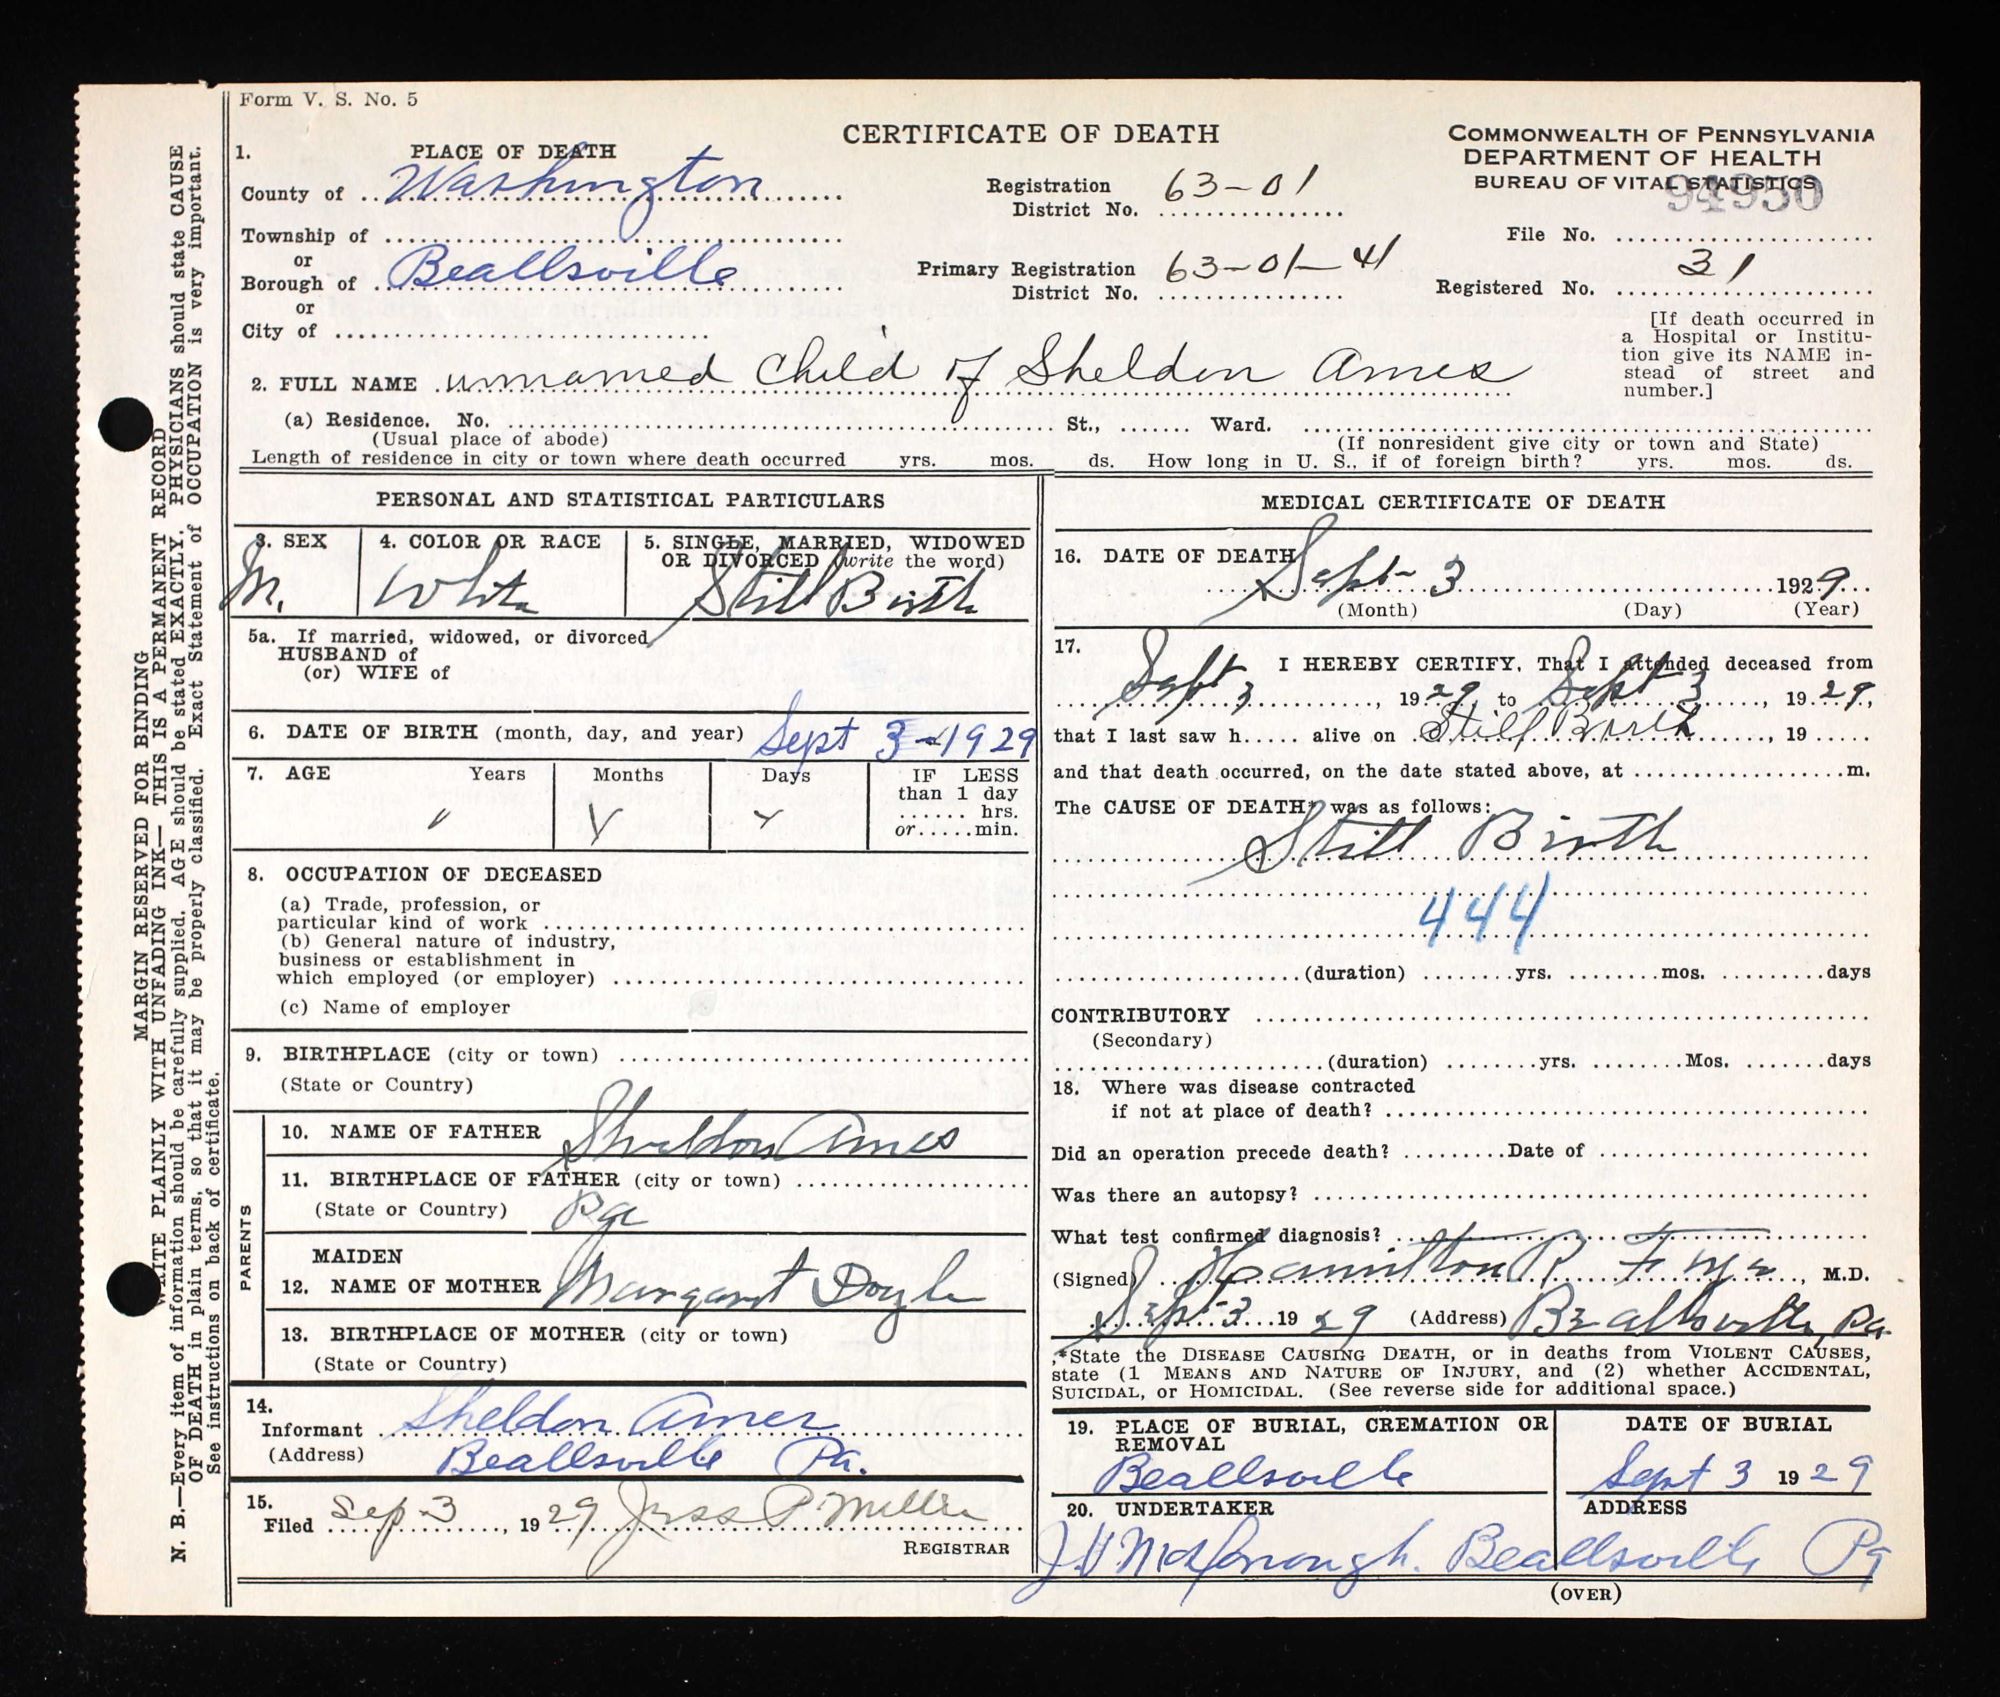 Form V. S. No. 5
CERTIFICATE OF DEATH
COMMONWEALTH OF PENNSYLVANIA
DEPARTMENT OF HEALTH
BUREAU OF VITAL STATISTICS
94950
1. PLACE OF DEATH
County of Washington
Township of
or
Borough of Beallsville
or
City of
Registration District No. 63-01
Primary Registration District No. 63-01-41
File No.
Registered No. 31
[If death occurred in
a Hospital or Institu-
tion give its NAME in-
stead of street and
number.]
2. FULL NAME unnamed child of Sheldon Ames
(a) Residence. No. St., Ward.
(Usual place of abode) (If nonresident give city or town and State)
Length of residence in city or town where death occurred yrs. mos. ds. How long in U. S., if of foreign birth? yrs. mos. ds.
PERSONAL AND STATISTICAL PARTICULARS
3. SEX 4. COLOR OR RACE 5. SINGLE, MARRIED, WIDOWED
OR DIVORCED (write the word)
M. White Still Birth
5a. If married, widowed, or divorced
HUSBAND of
(or) WIFE of
6. DATE OF BIRTH (month, day, and year) Sept 3-1929
7. AGE Years Months Days IF LESS
than 1 day
hrs.
or min.
8. OCCUPATION OF DECEASED
(a) Trade, profession, or
particular kind of work
(b) General nature of industry,
business or establishment in
which employed (or employer)
(c) Name of employer
9. BIRTHPLACE (city or town)
(State or Country)
PARENTS
10. NAME OF FATHER Sheldon Ames
11. BIRTHPLACE OF FATHER (city or town)
(State or Country) Pa
MAIDEN
12. NAME OF MOTHER Margaret Doyle
13. BIRTHPLACE OF MOTHER (city or town)
(State or Country)
14.
Informant Sheldon Ames
(Address) Beallsville Pa.
15.
Filed Sep 3, 1929 Jess P Miller
REGISTRAR
MEDICAL CERTIFICATE OF DEATH
16. DATE OF DEATH
Sept- 3 1929
(Month) (Day) (Year)
17.
I HEREBY CERTIFY, That I attended deceased from
Sept 3, 1929, to Sept 3, 1929,
that I last saw h alive on Still Birth, 19
and that death occurred, on the date stated above, at m.
The CAUSE OF DEATH* was as follows:
Still Birth
444
(duration) yrs. mos. days
CONTRIBUTORY
(Secondary)
(duration) yrs. Mos. days
18. Where was disease contracted
if not at place of death?
Did an operation precede death? Date of
Was there an autopsy?
What test confirmed diagnosis?
(Signed) Hamilton R. , M.D.
Sept-3 1929 (Address) Beallsville, Pa.
*State the DISEASE CAUSING DEATH, or in deaths from VIOLENT CAUSES,
state (1 MEANS AND NATURE OF INJURY, and (2) whether ACCIDENTAL,
SUICIDAL, or HOMICIDAL. (See reverse side for additional space.)
19. PLACE OF BURIAL, CREMATION OR
REMOVAL
Beallsville
DATE OF BURIAL
Sept 3 1929
20. UNDERTAKER ADDRESS
McDonough. Beallsville Pa
(OVER)
MARGIN RESERVED FOR BINDING
WRITE PLAINLY WITH UNFADING INK— THIS IS A PERMANENT RECORD
N. B.—Every item of information should be carefully supplied. AGE should be stated EXACTLY. PHYSICIANS should state CAUSE
OF DEATH in plain terms, so that it may be properly classified. Exact Statement of OCCUPATION is very important.
See instructions on back of certificate.